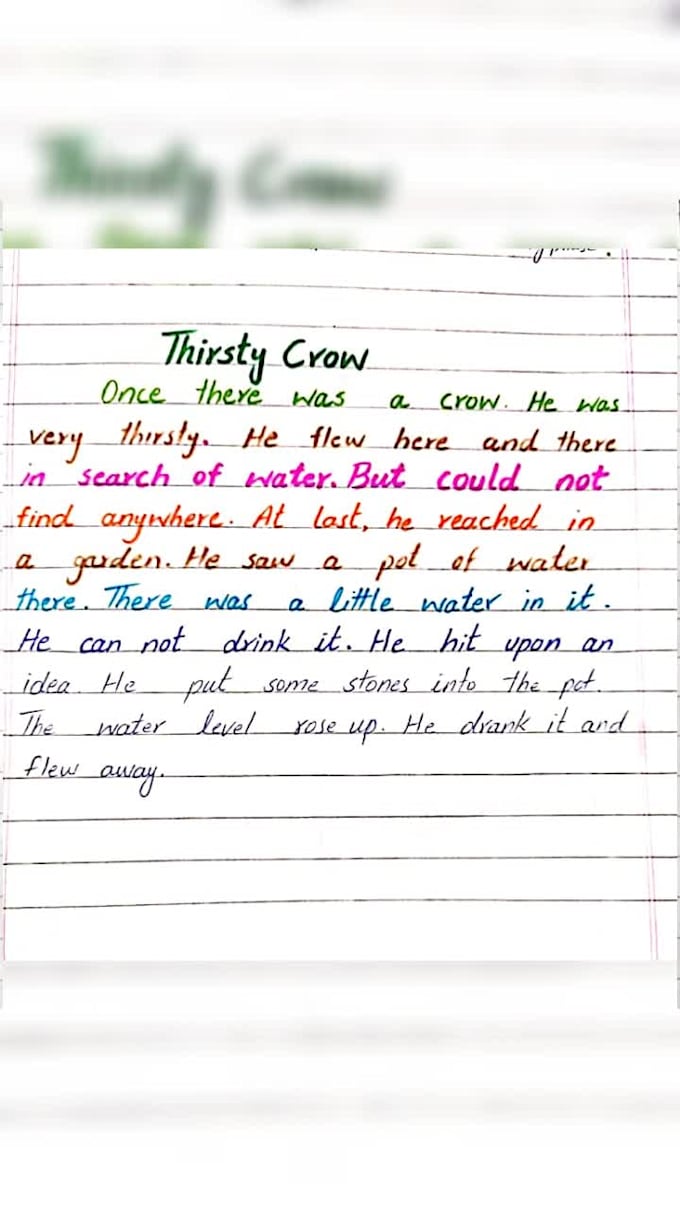 Thirsty Crow
Thirsty Crow
Once there was a crow. He was
very thirsty. He flew here and there
in search of water. But could not
find anywhere. At last, he reached in
a garden. He saw a pot of water
there. There was a little water in it.
He can not drink it. He hit upon an
idea. He put some stones into the pot.
The water level rose up. He drank it and
flew away.